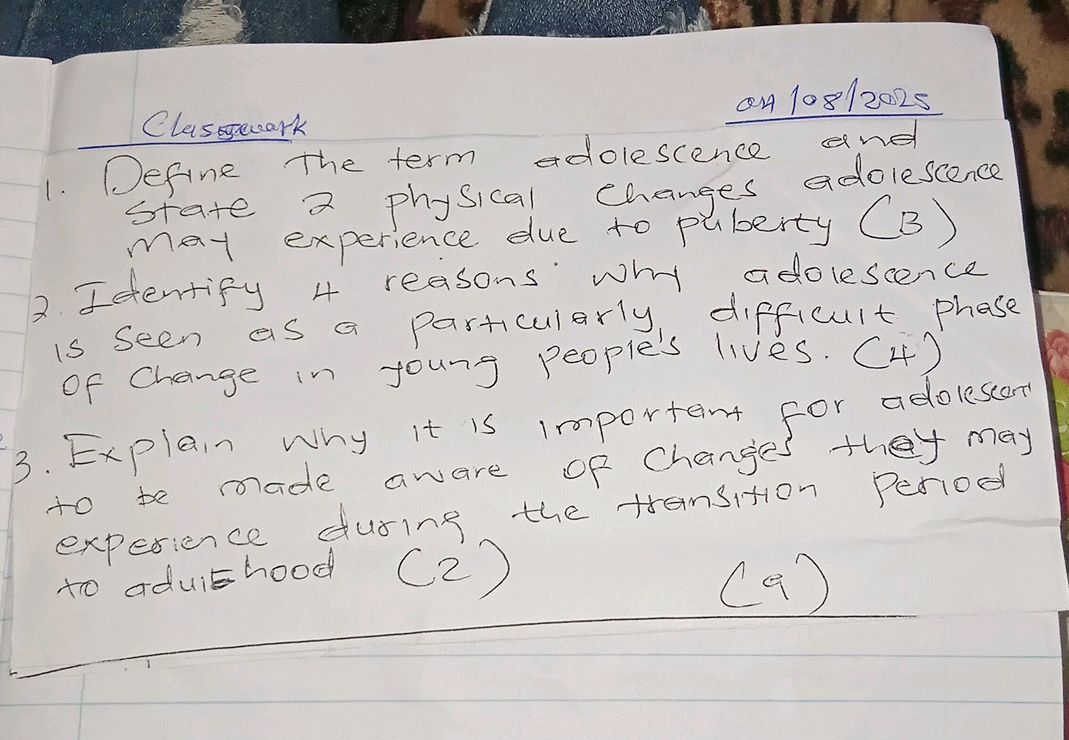 Classwork
04/08/2025
1. Define the term adolescence and
state 2 physical changes adolescence
may experience due to puberty (3)
2. Identify 4 reasons why adolescence
is seen as a particularly difficult phase
of change in young people's lives. (4)
3. Explain why it is important for adolescent
to be made aware of changes they may
experience during the transition period
to adulthood (2)
(9)